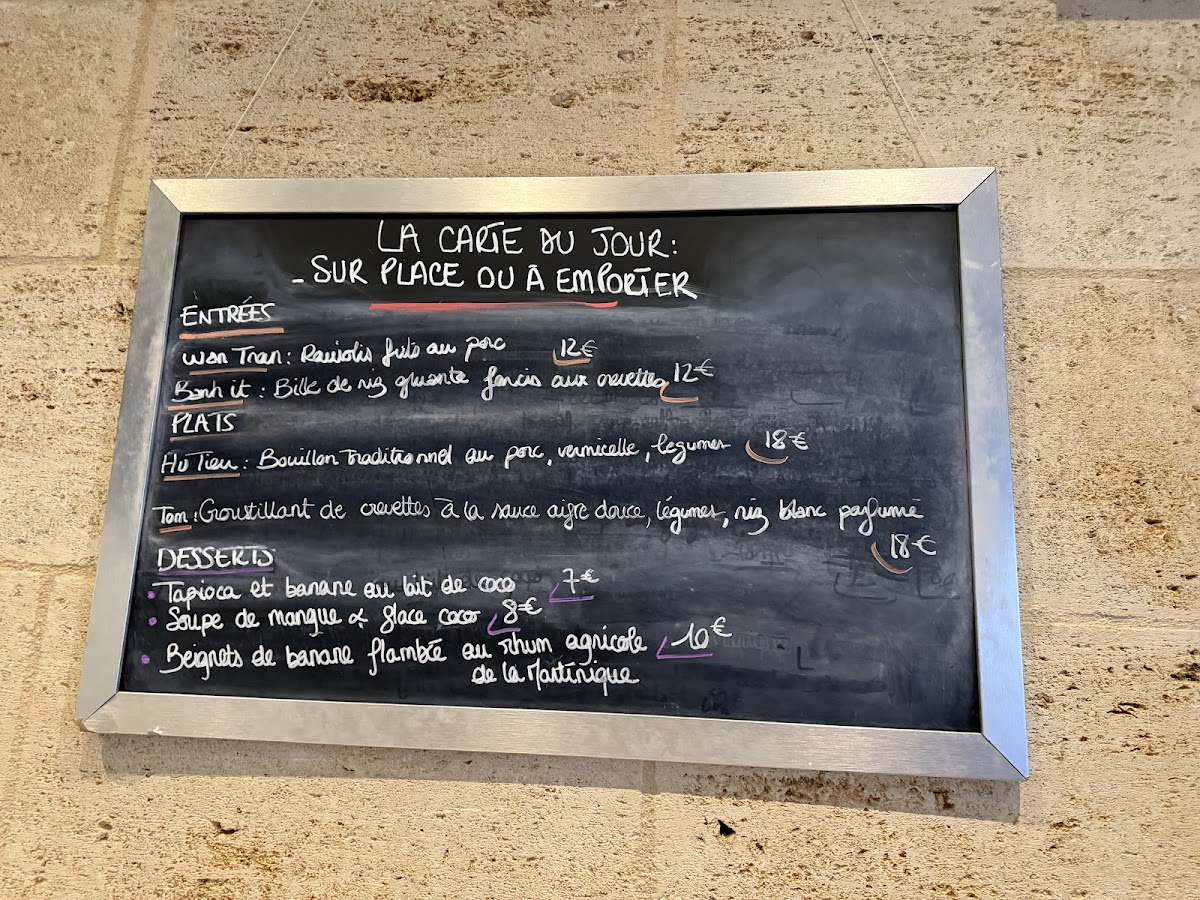 LA CARTE DU JOUR:
- SUR PLACE OU À EMPORTER
ENTRÉES
Wan Tran : Raviolis frits au porc 12€
Banh it : Bille de riz gluante farcis aux crevettes 12€
PLATS
Hu Tieu : Bouillon traditionnel au porc, vermicelle, légumes 18€
Tom : Croustillant de crevettes à la sauce aigre douce, légumes, riz blanc parfumé
18€
DESSERTS
• Tapioca et banane au lait de coco 7€
• Soupe de mangue & glace coco 8€
• Beignets de banane flambée au rhum agricole 10€
de la Martinique